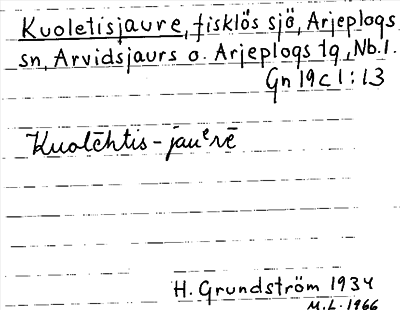 Kuoletisjaure, fisklös sjö, Arjeplogs
sn, Arvidsjaurs o. Arjeplogs tg, Nb.l.
Gn 19c1:13
Kuolēhtis-jauᵉrē
H. Grundström 1934
M.L. 1966